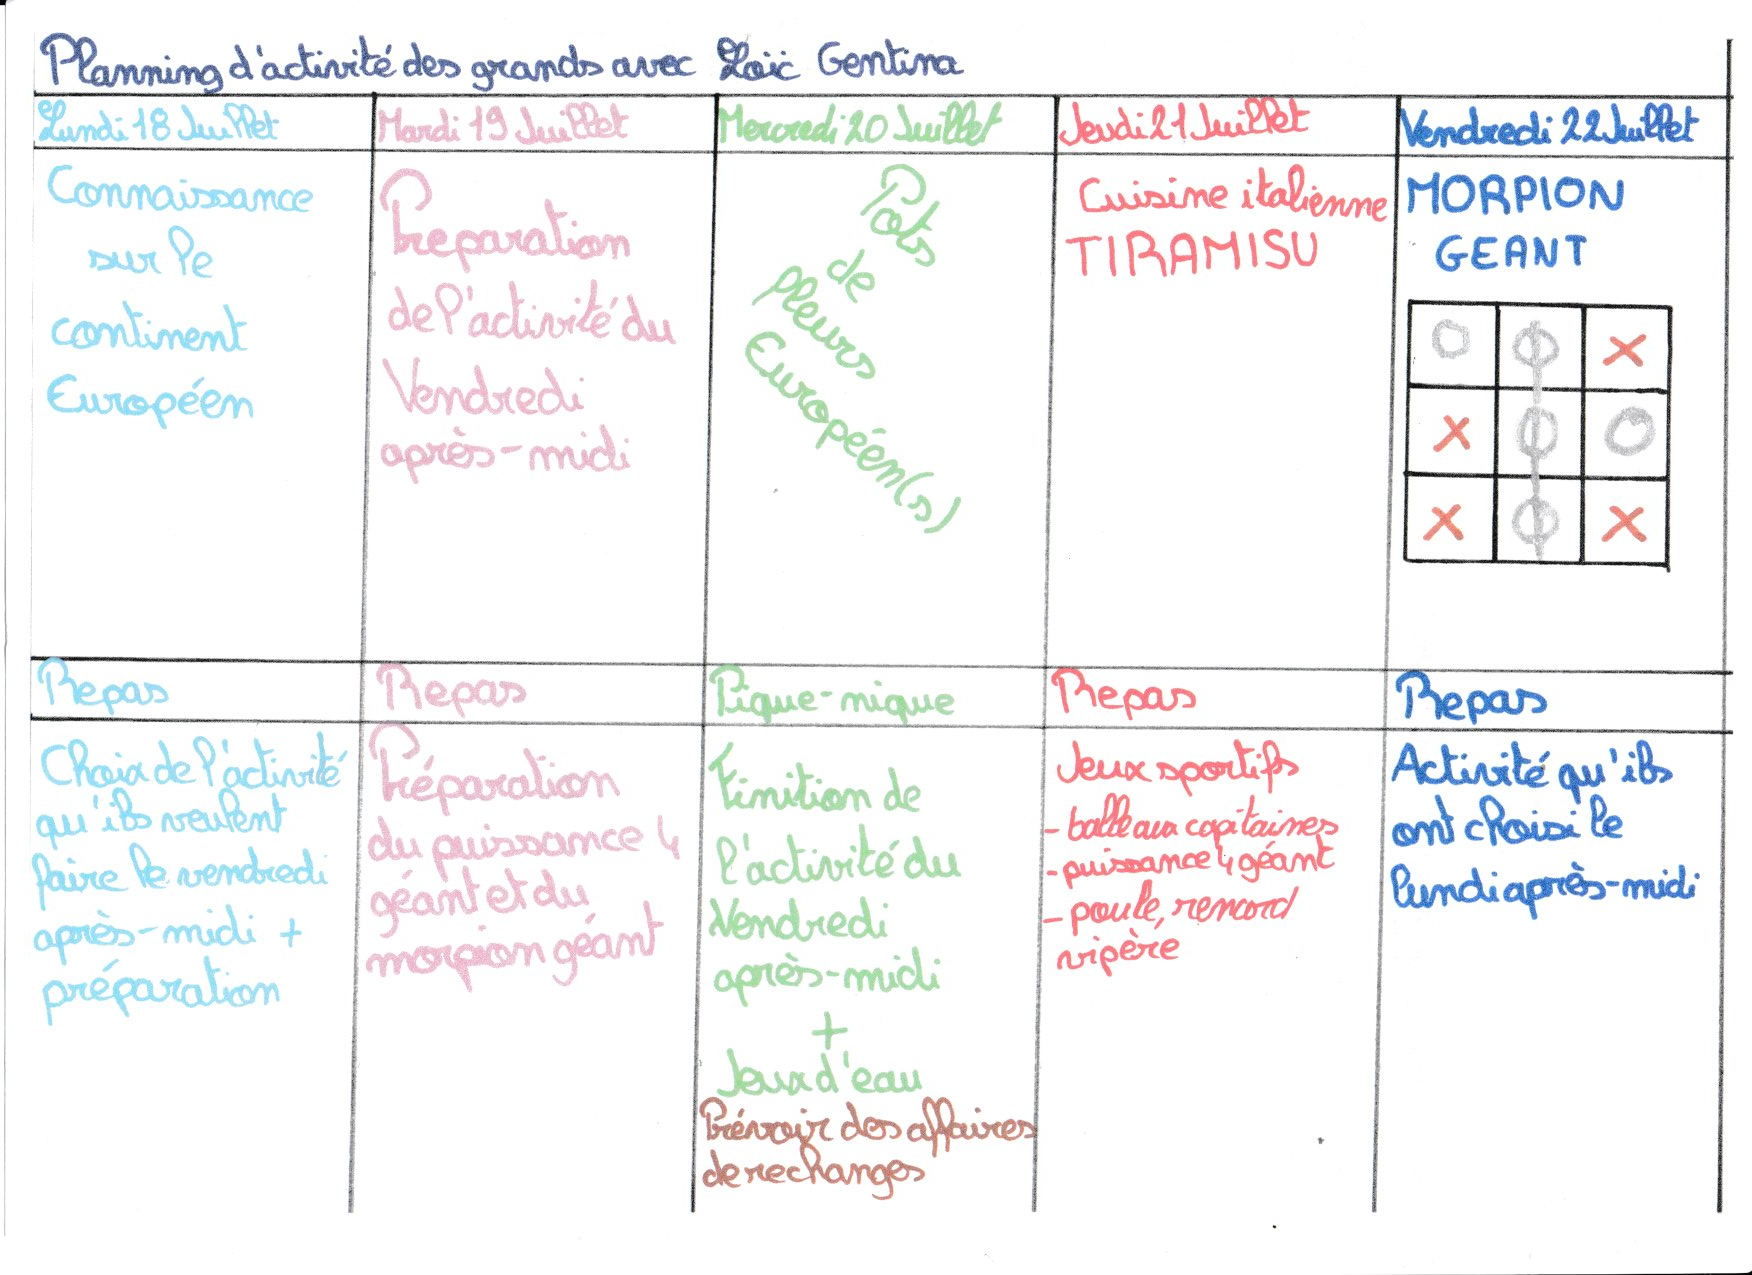 Planning d'activité des grands avec Loïc Gentina
Lundi 18 Juillet
Mardi 19 Juillet
Mercredi 20 Juillet
Jeudi 21 Juillet
Vendredi 22 Juillet
Connaissance
sur le
continent
Européen
Préparation
de l'activité du
Vendredi
après-midi
Pots
de
fleurs
Européén(s)
Cuisine italienne
TIRAMISU
MORPION
GEANT
O O X
X O O
X O X
Repas
Repas
Pique-nique
Repas
Repas
Choix de l'activité
qu'ils veulent
faire le vendredi
après-midi +
préparation
Préparation
du puissance 4
géant et du
morpion géant
Finition de
l'activité du
Vendredi
après-midi
+
Jeux d'eau
Prévoir des affaires
de rechanges
Jeux sportifs
- balle aux capitaines
- puissance 4 géant
- poule, renard
vipère
Activité qu'ils
ont choisi le
lundi après-midi